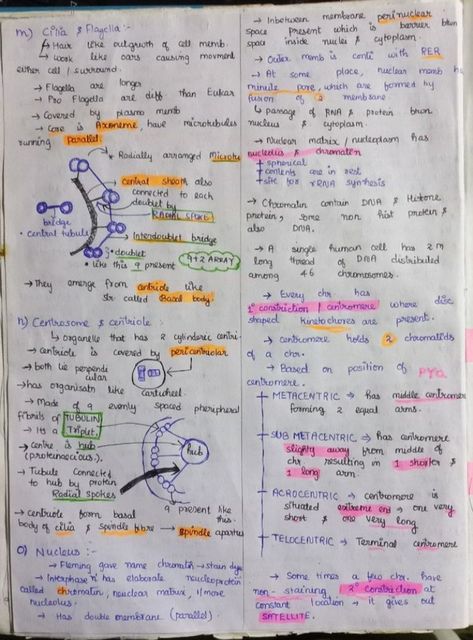 m) Cilia & Flagella :-
↳ Hair like outgrowth of cell memb.
↳ Work like oars causing movement
either cell / surround.
→ Flagella are longer
→ Pro Flagella are diff than Eukar
→ Covered by plasma memb
→ Core is Axoneme, have microtubules
running parallel.
→ Radially arranged Microtu
central sheath also
connected to each
doublet by
RADIAL SPOKE
bridge
• central tubule
Interdoublet bridge
doublet
• like this 9 present
9+2 ARRAY
→ They emerge from centriole like
str called Basal body.
n) Centrosome & centriole :-
↳ organelle that has 2 cylinderic centri-
→ centriole is covered by pericentriolar
→ both lie perpendi
cular
→ has organisatn like cartwheel
→ Made of 9 evenly spaced pheripheral
fibrils of TUBULIN
→ Its a Triplet.
→ centre is hub
(proteinacious).
hub
→ Tubule connected
to hub by protein
Radial spokes
9 present like
this.
→ centriole form basal
body of cilia & spindle fibre → spindle apartus
o) Nucleus :-
→ Fleming gave name chromatin → stain dye
→ Interphase n' has elaborate nucleoprotein
called chromatin, nuclear matrix, 1/more
nucleolus.
→ Has double membrane (parallel).
→ Inbetween membrane perinuclear
space present which is barrier btwn
space inside nuclei & cytoplasm.
→ Outer memb is conti with RER
→ At some place, nuclear memb has
minute pore, which are formed by
fusion of 2 membrane
↳ passage of RNA & protein btwn
nucleus & cytoplasm.
→ Nuclear matrix / nucleoplasm has
nucleolus & chromatin
+ spherical
+ contents are in rest
+ site for rRNA synthesis
→ Chromatin contain DNA & Histone
protein, some non hist protein &
also DNA.
→ A single human cell has 2 m
long thread of DNA distributed
among 46 chromosomes.
→ Every chr has
1° constriction / centromere where disc
shaped kinetochores are present.
→ centromere holds 2 chromatids
of a chr.
→ Based on position of PYQ
centromere.
METACENTRIC → has middle centromere
forming 2 equal arms.
SUB METACENTRIC → has centromere
slighty away from middle of
chr resulting in 1 shorter &
1 long arm.
ACROCENTRIC → centromere is
situated extreme end → one very
short & one very long
TELOCENTRIC → Terminal centromere
→ Some times a few chr. have
non-staining, 2° constriction at
constant location → it gives out
SATELLITE.